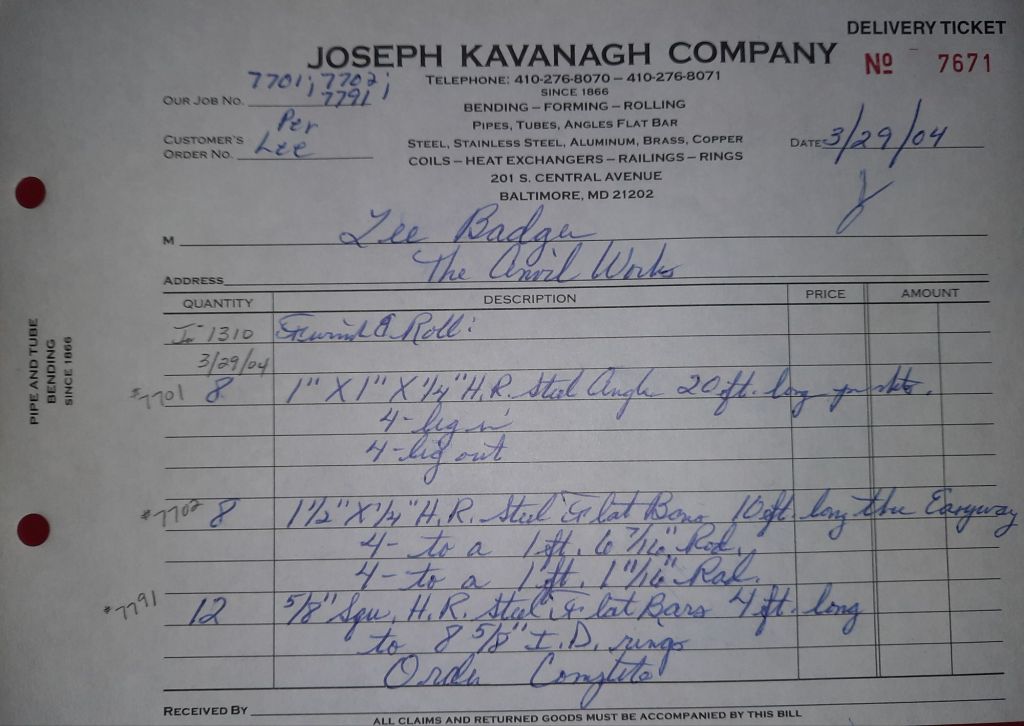 DELIVERY TICKET
JOSEPH KAVANAGH COMPANY
Nº 7671
TELEPHONE: 410-276-8070 – 410-276-8071
SINCE 1866
BENDING – FORMING – ROLLING
PIPES, TUBES, ANGLES FLAT BAR
STEEL, STAINLESS STEEL, ALUMINUM, BRASS, COPPER
COILS – HEAT EXCHANGERS – RAILINGS – RINGS
201 S. CENTRAL AVENUE
BALTIMORE, MD 21202
OUR JOB NO. 7701; 7702; 7791
CUSTOMER'S ORDER NO. Per Lee
DATE 3/29/04
M Lee Badger
The Anvil Works
ADDRESS
QUANTITY DESCRIPTION PRICE AMOUNT
1310 & Roll:
3/29/04
#7701 8 1" X 1" X 1/4" H.R. Steel Angle 20 ft. long
4- leg in
4- leg out
#7702 8 1 1/2" X 1/4" H.R. Steel Flat Bars 10 ft. long the Easyway
4- to a 1 ft. 6 7/16" Rad.
4- to a 1 ft. 1 11/16" Rad.
#7791 12 5/8" Squ. H.R. Steel Flat Bars 4 ft. long
to 8 5/8" I.D. rings
Order Complete
RECEIVED BY
ALL CLAIMS AND RETURNED GOODS MUST BE ACCOMPANIED BY THIS BILL
PIPE AND TUBE
BENDING
SINCE 1866